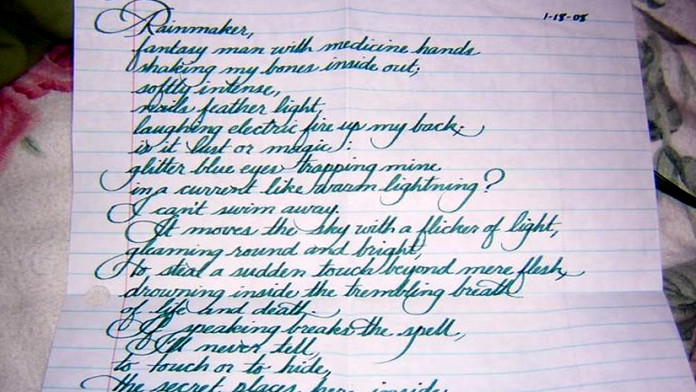 1-18-08
Rainmaker,
fantasy man with medicine hands
shaking my bones inside out;
softly intense,
nails feather light
laughing electric fire up my back;
is it lust or magic:
glitter blue eyes trapping mine
in a current like warm lightning?
I can't swim away.
It moves the sky with a flicker of light,
gleaming round and bright,
to steal a sudden touch beyond mere flesh,
drowning inside the trembling breath
of life and death.
If speaking breaks the spell,
I'll never tell,
to touch or to hide,
the secret places here inside